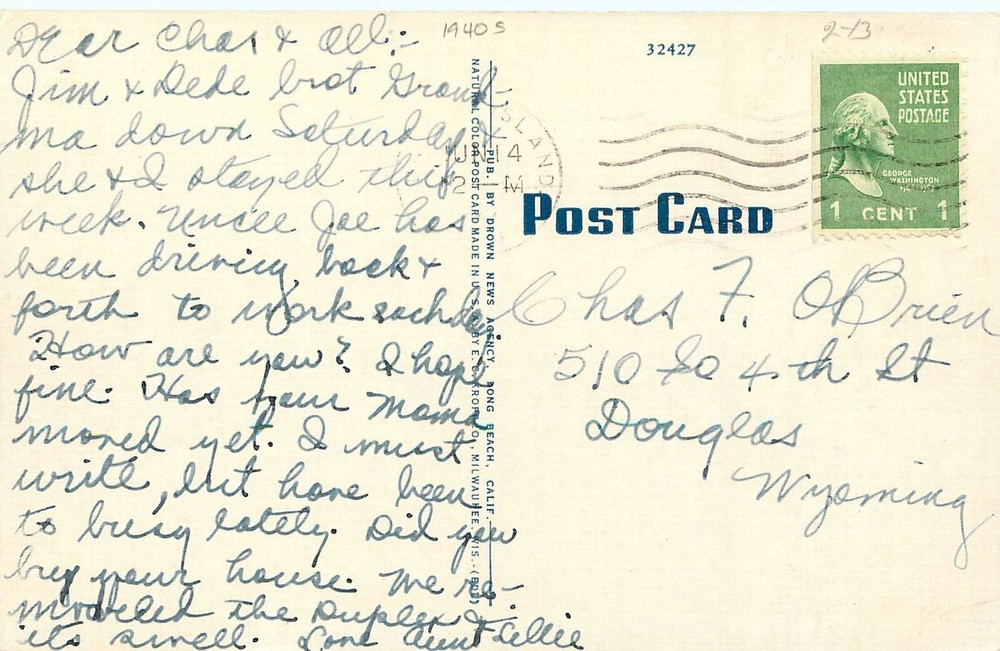 Dear Chas & All:-
Jim & Dede brot Grand-
ma down Saturday &
she & I stayed this
week. Uncle Joe has
been driving back &
forth to work each day.
How are you? I hope
fine. Has your Mama
moved yet. I must
write, but have been
to busy lately. Did you
buy your house. We re-
modeled the Duplex &
its swell. Love Aunt Lellie
1940s
NATURAL COLOR POST CARD MADE IN U.S.A. BY E. C. KROPP CO., MILWAUKEE, WIS.
PUB. BY DROWN NEWS AGENCY, LONG BEACH, CALIF.
32427
2-13
ISLAND
JUN 14
2 M
UNITED
STATES
POSTAGE
GEORGE
WASHINGTON
1789-1797
1 CENT 1
POST CARD
Chas F. O'Brien
510 So 4th St
Douglas
Wyoming